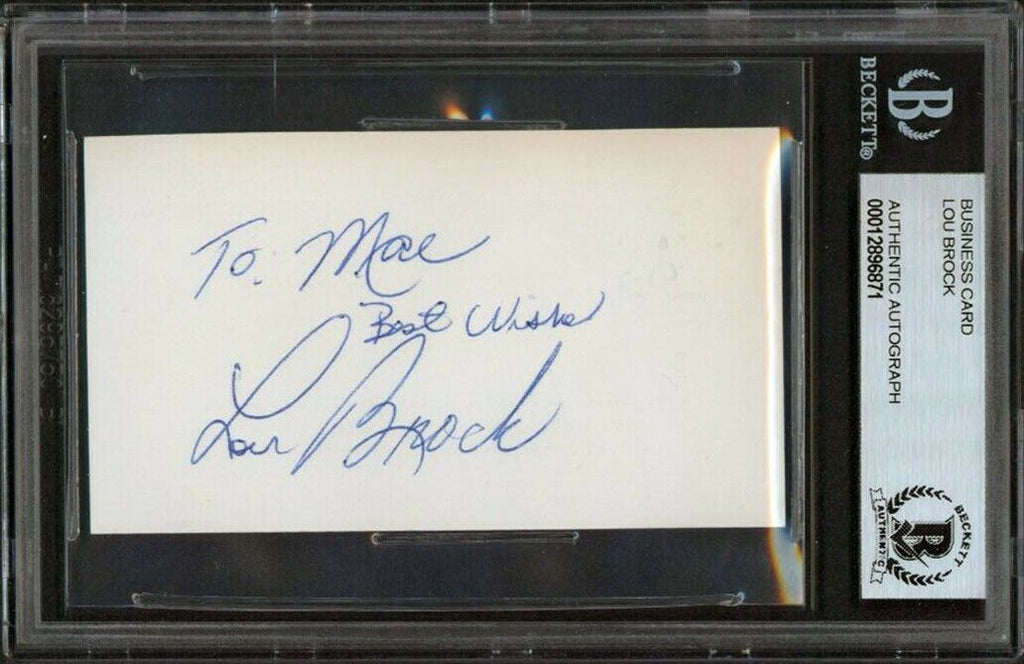 To. Mae
Best Wishes
Lou Brock
B
BECKETT®
BUSINESS CARD
LOU BROCK
AUTHENTIC AUTOGRAPH
00012896871
BECKETT
B
AUTHENTIC